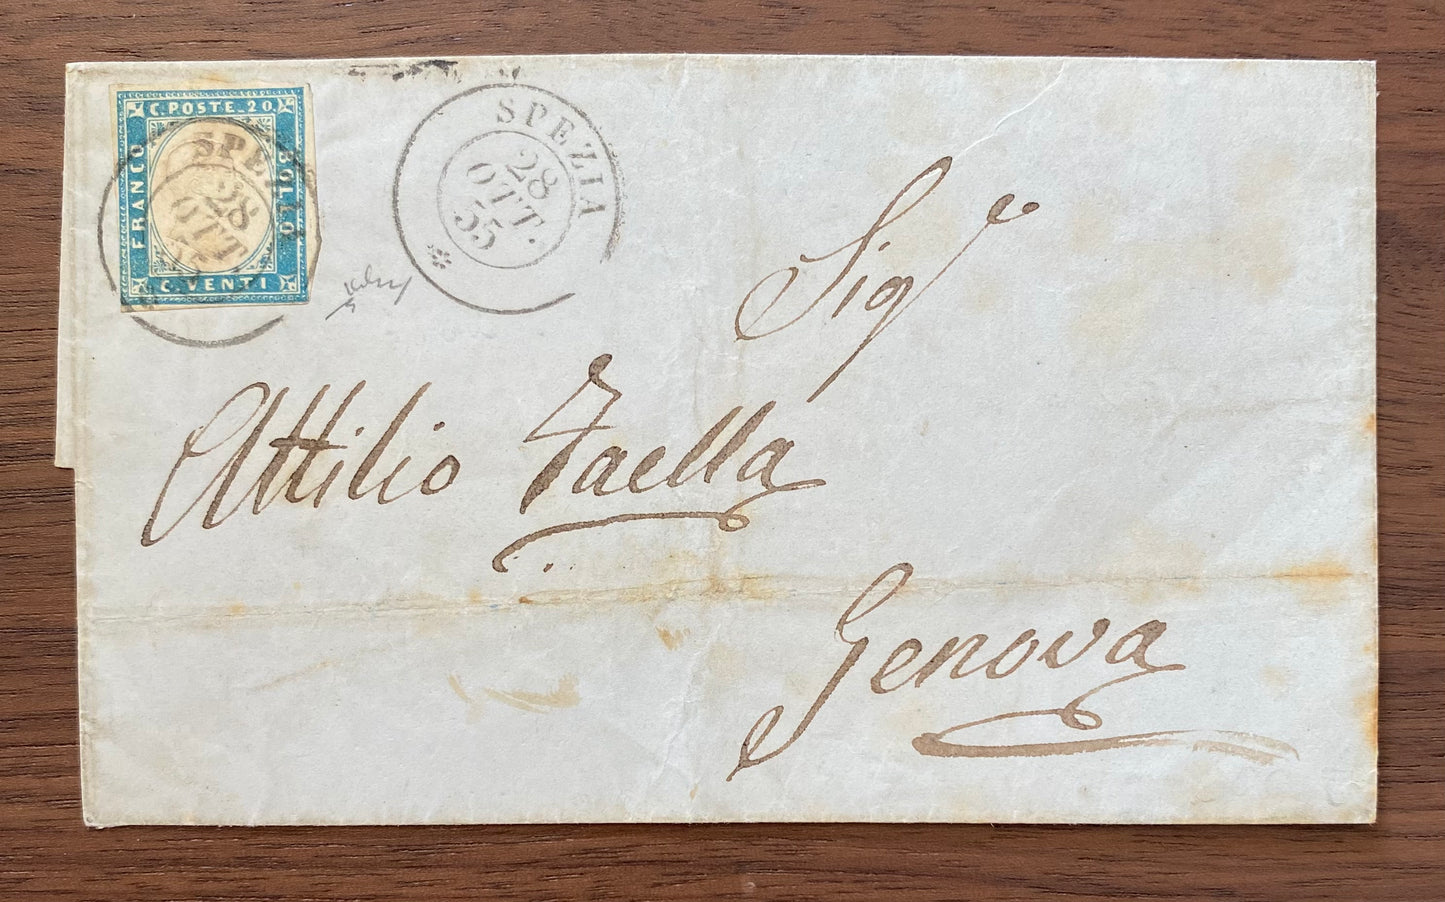 C. POSTE. 20
FRANCO
BOLLO
C. VENTI
SPEZIA
28
OTT
SPEZIA
28
OTT.
55
Sigr
Attilio Faella
Genova